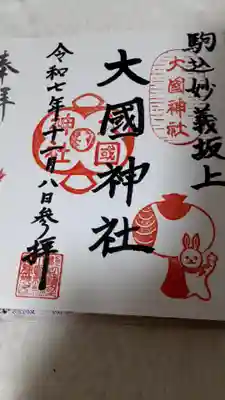 駒込妙義坂上
大國神社
大國神社
神國
社
令和七年十一月八日参拝
奉拝